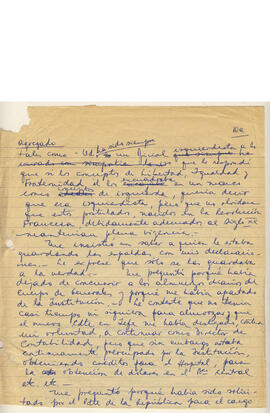 Agregado
ha sido siempre
tales como - Ud es un Oficial izquierdista a lo
que le respondí
que si los conceptos de Libertad, Igualdad y
Fraternidad él los encuadraba en un marco
como de izquierda, quería decir
que era izquierdista, pero que no olvidara
que estos postulados, nacidos en la Revolución
Francesa, debidamente adecuados al Siglo XX
mantenían plena vigencia.
Me insistió en saber quien le estaba
guardando las espaldas, con mis declaraciones.
Le expresé que sólo se las guardaba
a la verdad. Me preguntó porqué había
dejado de concurrir a los almuerzos diarios del
Cuerpo de Generales, y porqué me había apartado
de la Institución. Le contesté que no tenía
casi tiempo ni siquiera para almorzar, que
el nuevo Cdte. en Jefe me había destinado, contra
mi voluntad, a continuar como Director de
Contabilidad, pero que sin embargo estaba
continuamente preocupado por la Institución,
obteniendo créditos para el Hospital, para
la obtención de dólares en el Bco Central
etc. etc.
Me preguntó porqué había sido solici-
tado por el Pdte de la República para el cargo